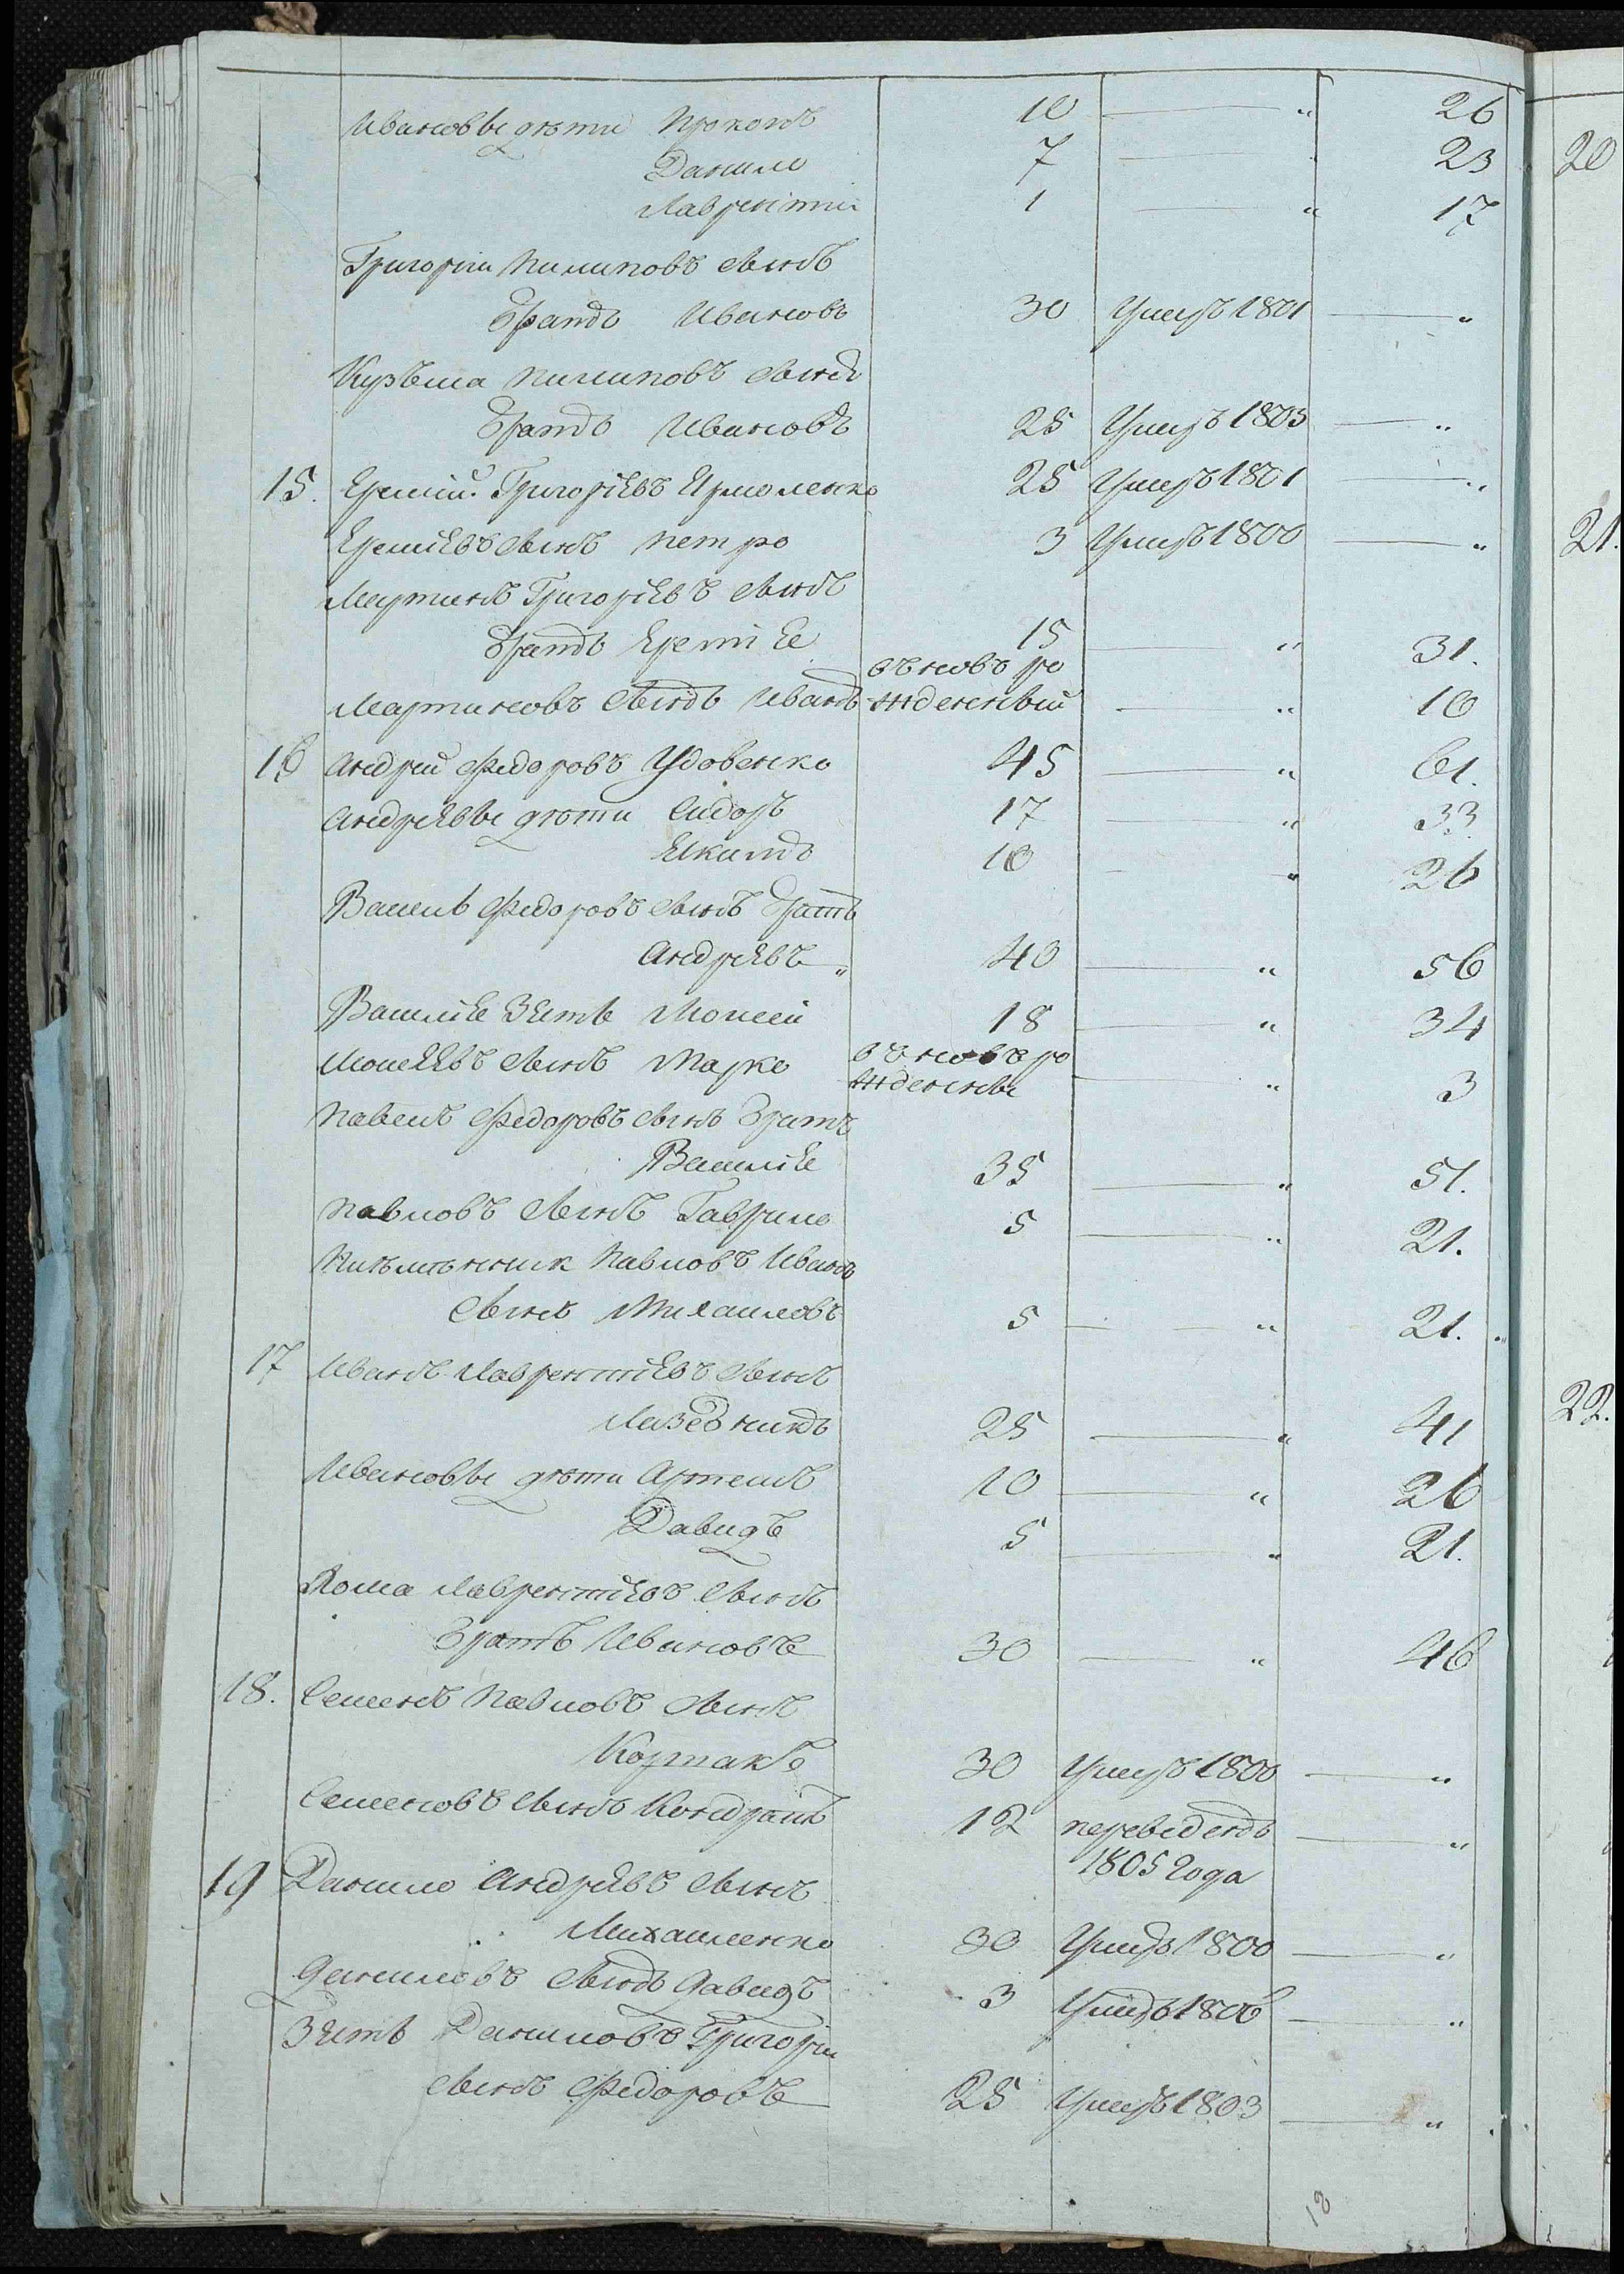 Ивановы дѣти Прокопъ 10 — „ 26
Данило 7 — 23
Лаврентий 1 — „ 17
Григорій Пилиповъ сынъ
братъ Ивановъ 30 Умеръ 1801 — „
Кузьма Пилиповъ сынъ
братъ Ивановъ 25 Умеръ 1803 — „
15. Еремій Григоріевъ Ярмоленко 25 Умеръ 1801 — „
Ереміевъ сынъ Петро 3 Умеръ 1800 — „
Мартинъ Григоріевъ сынъ
братъ Еремія 15 — „ 31.
Мартиновъ сынъ Иванъ въновь рожденный — „ 16
16 Андрей Федоровъ Удовенко 45 — „ 61.
Андреевы дѣти Сидоръ 17 — „ 33
Якимъ 10 — „ 26
Василь Федоровъ сынъ братъ
Андреевъ „ 40 — „ 56
Василія зять Мосей 18 — „ 34
Мосеевъ сынъ Марко въновъ рожденны — „ 3
Павелъ Федоровъ сынъ братъ
Василія 35 — „ 51.
Павловъ сынъ Гаврило 5 — „ 21.
Павловъ Иванъ
сынъ Михайловъ 5 — „ 21.
17 Иванъ Лаврентіевъ сынъ
25 — „ 41
Ивановы дѣти Артемъ 10 — „ 26
Давидъ 5 — „ 21.
Хома Лаврентіевъ сынъ
братъ Ивановъ 30 — „ 46
18. Семенъ Павловъ сынъ
30 Умеръ 1800 — „
Семеновъ сынъ Кондратъ 12 переведенъ — „
1805 года
19 Данило Андреевъ сынъ
Михайленко 30 Умеръ 1800 — „
Даниловъ сынъ Давидъ 3 Умеръ 1806 — „
Зять Даниловъ Григорій
сынъ Федоровъ 25 Умеръ 1803 — „
12
20
21.
22.